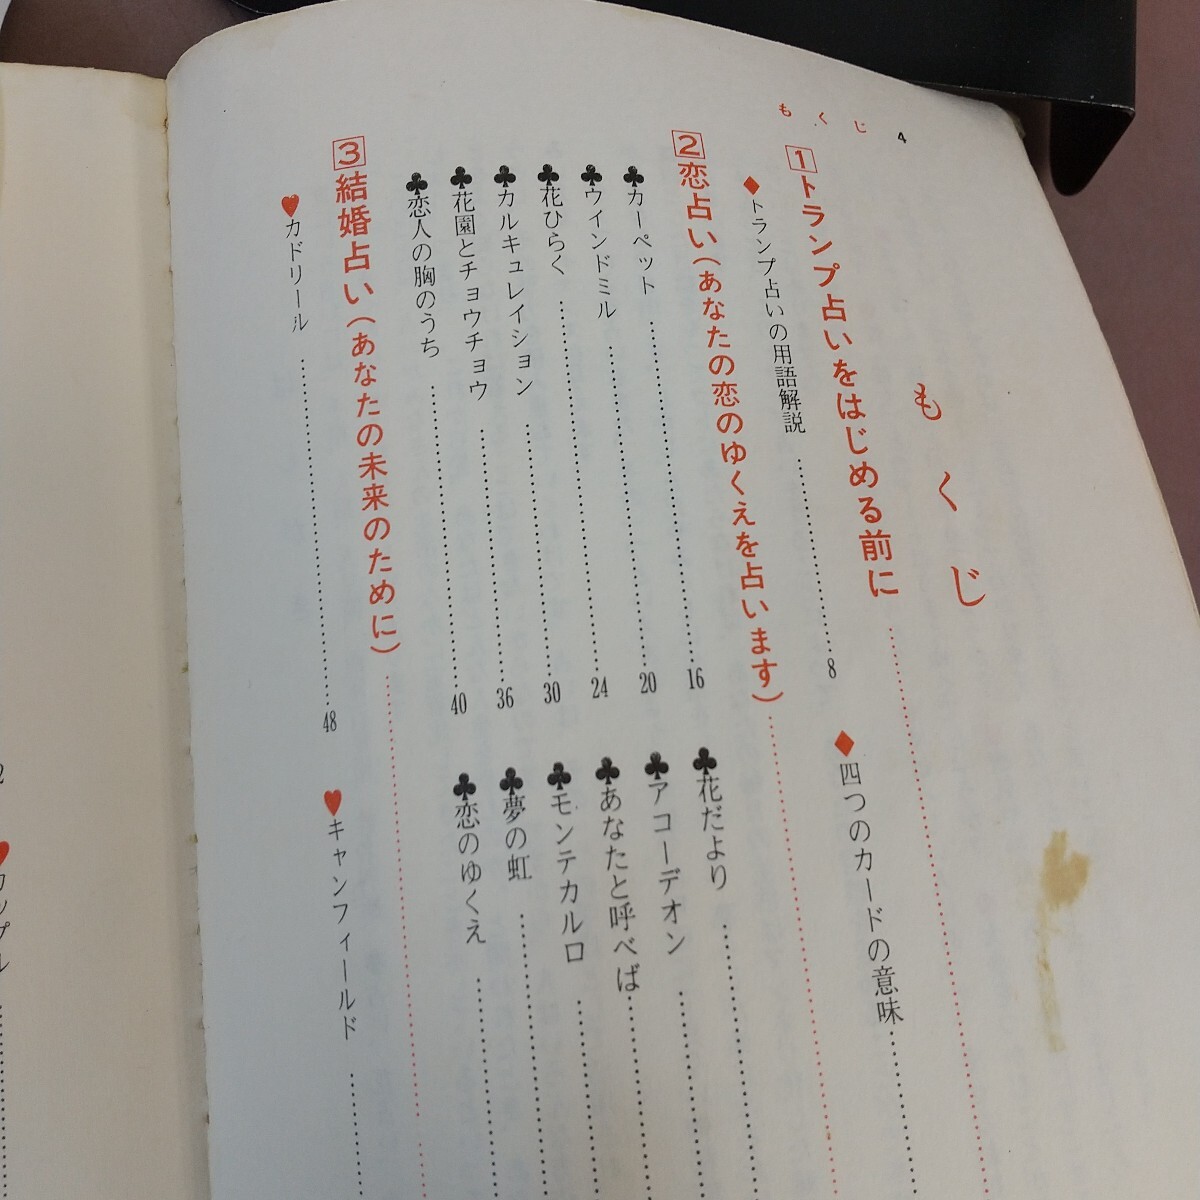 もくじ 4
もくじ
1 トランプ占いをはじめる前に
♦トランプ占いの用語解説 8
♦四つのカードの意味
2 恋占い(あなたの恋のゆくえを占います)
♣カーペット 16
♣ウインドミル 20
♣花ひらく 24
♣カルキュレイション 30
♣花園とチョウチョウ 36
♣恋人の胸のうち 40
♣花だより
♣アコーデオン
♣あなたと呼べば
♣モンテカルロ
♣夢の虹
♣恋のゆくえ
3 結婚占い(あなたの未来のために)
♥カドリール 48
♥キャンフィールド